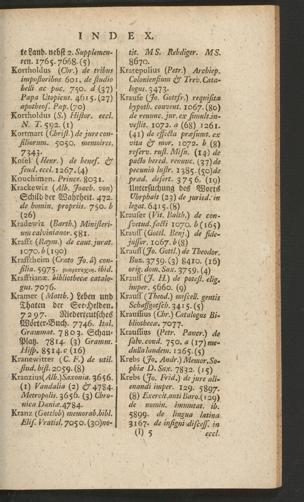 INDEX.
te Land. nebst 2. Supplemen-
ten. 1765. 7668. (5)
Kortholdus (Chr.) de tribus
impostoribus 601. de studio
belli ac pac. 750. d (37)
Papa Utopiens. 4615. (27)
apotheos. Pap. (70)
Kortholdus (S.) Histor. eccl.
N. T. 592. (1)
Kortmart (Christ.) de jure con-
siliorum. 5050. memoires.
7343.
Kosel (Henr.) de benef. &
feud. eccl. 1267. (4)
Kouchimen. Prince. 8031.
Krackewitz (Alb. Joach. von)
Schild der Wahrheit. 472.
de homin. propriis. 750. b
(26)
Kradewitz (Barth.) Ministeri-
um calvinianor. 581.
Krafft (Raym.) de caut. jurat.
1070. b (190)
Krafftheim (Crato Jo. à) con-
silia. 5975. ibid.
Krafftianæ bibliothecæ catalo-
gus. 7076.
Kramer (Matth.) Leben und
Thaten der See-Helden.
7297. Niederteutsches
Wörter-Buch. 7746. Ital.
Grammat. 7803. Schau-
Platz. 7814. (3) Gramm.
Hisp. 8514. c (16)
Kranewitter (C. F.) de util.
stud. hist. 2059. (8)
Kranzius (Alb.) Saxonia. 3656.
(1) Vandalia (2) & 4784.
Metropolis. 3656. (3) Chro-
nica Daniæ. 4784.
Kranz (Gottlob) memorab. bibl.
Elis. Vratisl. 7050. (30) no-
tit. MS. Rehdiger. MS.
8670.
Kratepolius (Petr.) Archiep.
Coloniensium & Trev. Cata-
logus. 3473.
Krause (Jo. Gottfr.) requisita
hypoth. convent. 1067. (80)
de renunc. jur. ex simult. in-
vestit. 1072. a (68) 1261.
(41) de effectu præsumt. ex
vita & mor. 1072. b (8)
reserv. rust. Misn. (14) de
pactis hered. renunc. (37) de
pecunia lustr. 1385. (50) de
præd. desert. 3756. (19)
Untersuchung des Worts
Uhrphalt (23) de juried. in
legat. 6415. (8)
Krauser (Vit. Balth.) de con-
fortud. facti 1070. b (165)
Krauss (Gottl. Henr.) de fide-
jussor. 1067. b (8)
Krauss (Jo. Gottl.) de Theodor.
Buz. 3759. (3) 8410. (16)
orig. dom. Sax. 3759. (4)
Krauss (J. H.) de potest. elig.
imper. 5660. (9)
Krauss (Theod.) miscell. gentis
Schaffgotsch. 3415. (5)
Kraussius (Chr.) Catalogus Bi-
bliothecæ. 7077.
Kraussius (Petr. Paner.) de
salv. cond. 750. a (17) me-
dulla landem. 1265. (5)
Krebs (Jo. Andr.) Memor. So-
phiæ D. Sax. 7832. (15)
Krebs (Jo. Frid.) de jure ali-
enandi imper. 129. 5897.
(8) Exercit. anti Baro. (129)
de nomin. immutat. ib.
5899. de lingua latina
3167. de insigni discess. in
(l) 5 eccl.